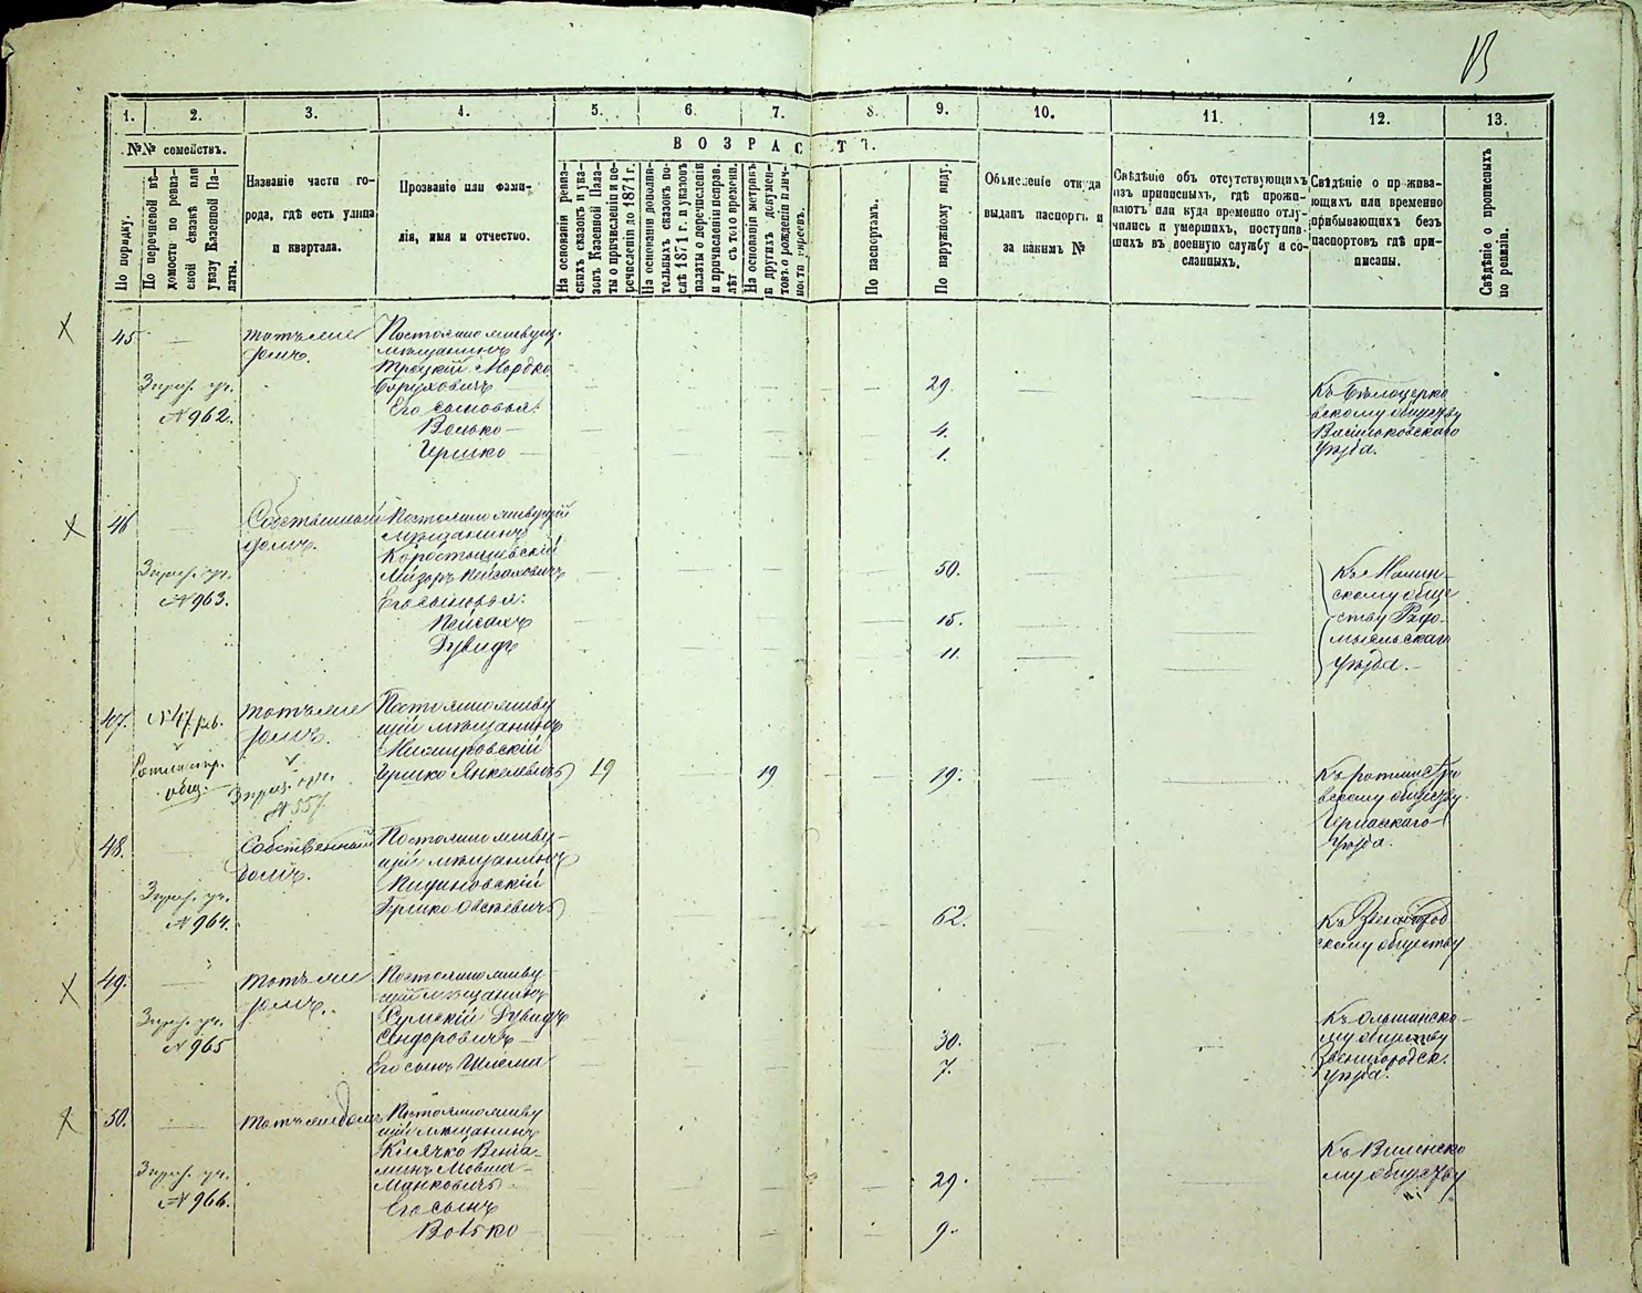 1. 2. 3. 4. 5. 6. 7. 8. 9. 10. 11. 12. 13.
№№ семействъ.
В О З Р А С Т Ъ.
По порядку.
По перечневой вѣ-
домости по ревиз-
ской сказкѣ или
указу Казенной Па-
латы.
Названіе части го-
рода, гдѣ есть улица
и квартала.
Прозваніе или фами-
лія, имя и отчество.
На основаніи ревиз-
скихъ сказокъ и ука-
зовъ Казенной Пала-
ты о причисленіи и пе-
речисленіи до 1871 г.
На основаніи дополни-
тельныхъ сказокъ по-
слѣ 1871 г. и указовъ
палаты о перечисленіи
и причисленіи исправ.
лѣт съ того времени.
На основаніи метрикъ
и другихъ докумен-
товъ о рожденіи и лич-
ности евреевъ.
По паспортамъ.
По наружному виду.
Объясненіе откуда
выданъ паспортъ и
за какимъ №
Свѣдѣніе объ отсутствующихъ
изъ приписныхъ, гдѣ прожи-
ваютъ или куда временно отлу-
чились и умершихъ, поступив-
шихъ въ военную службу и со-
сланныхъ.
Свѣдѣніе о прожива-
ющихъ или временно
прибывающихъ безъ
паспортовъ гдѣ при-
писаны.
Свѣдѣніе о прописныхъ
по ревизіи.
45
Тотъ же
домъ.
Постоянно живущ.
мѣщанинъ
Троцкій Мордко
Боруховичъ 29.
№ 962.
Его сыновья:
Волько 4.
Иршко 1.
Къ Бѣлоцерко
вскому обществу
Васильковскаго
уѣзда.
46
Собственный
домъ.
Постоянно живущій
мѣщанинъ
Коростышевскій
Лейзоръ Пейсаховичъ 50.
№ 963.
Его сыновья:
Пейсахъ 15.
Дувидъ 11.
Къ Малин-
скому обще
ству Радо-
мысльскаго
уѣзда.
47. № 47 рев.
Тотъ же
домъ.
Постоянно живу
щій мѣщанинъ
Немировскій
Иршко Янкелевичъ 19 19 19.
Ротмистр.
общ.
№ 557
Къ ротмистро
вскому обществу
Черкаскаго
уѣзда.
48.
Собственный
домъ.
Постоянно живу-
щій мѣщанинъ
62.
№ 964.
Къ Звенигород
скому обществу
49.
Тотъ же
домъ.
Постоянно живу
щій мѣщанинъ
Сумскій Дувидъ
Сендоровичъ 30.
№ 965
Его сынъ Шлема 7.
Къ Ольшанско-
му обществу
Звенигородск.
уѣзда.
50.
Тотъ же домъ
Постоянно живу
щій мѣщанинъ
Клячко Веніа-
минъ Мовша-
Манковичъ 29.
№ 966.
Его сынъ
Вотько 9.
Къ Виленско
му обществу